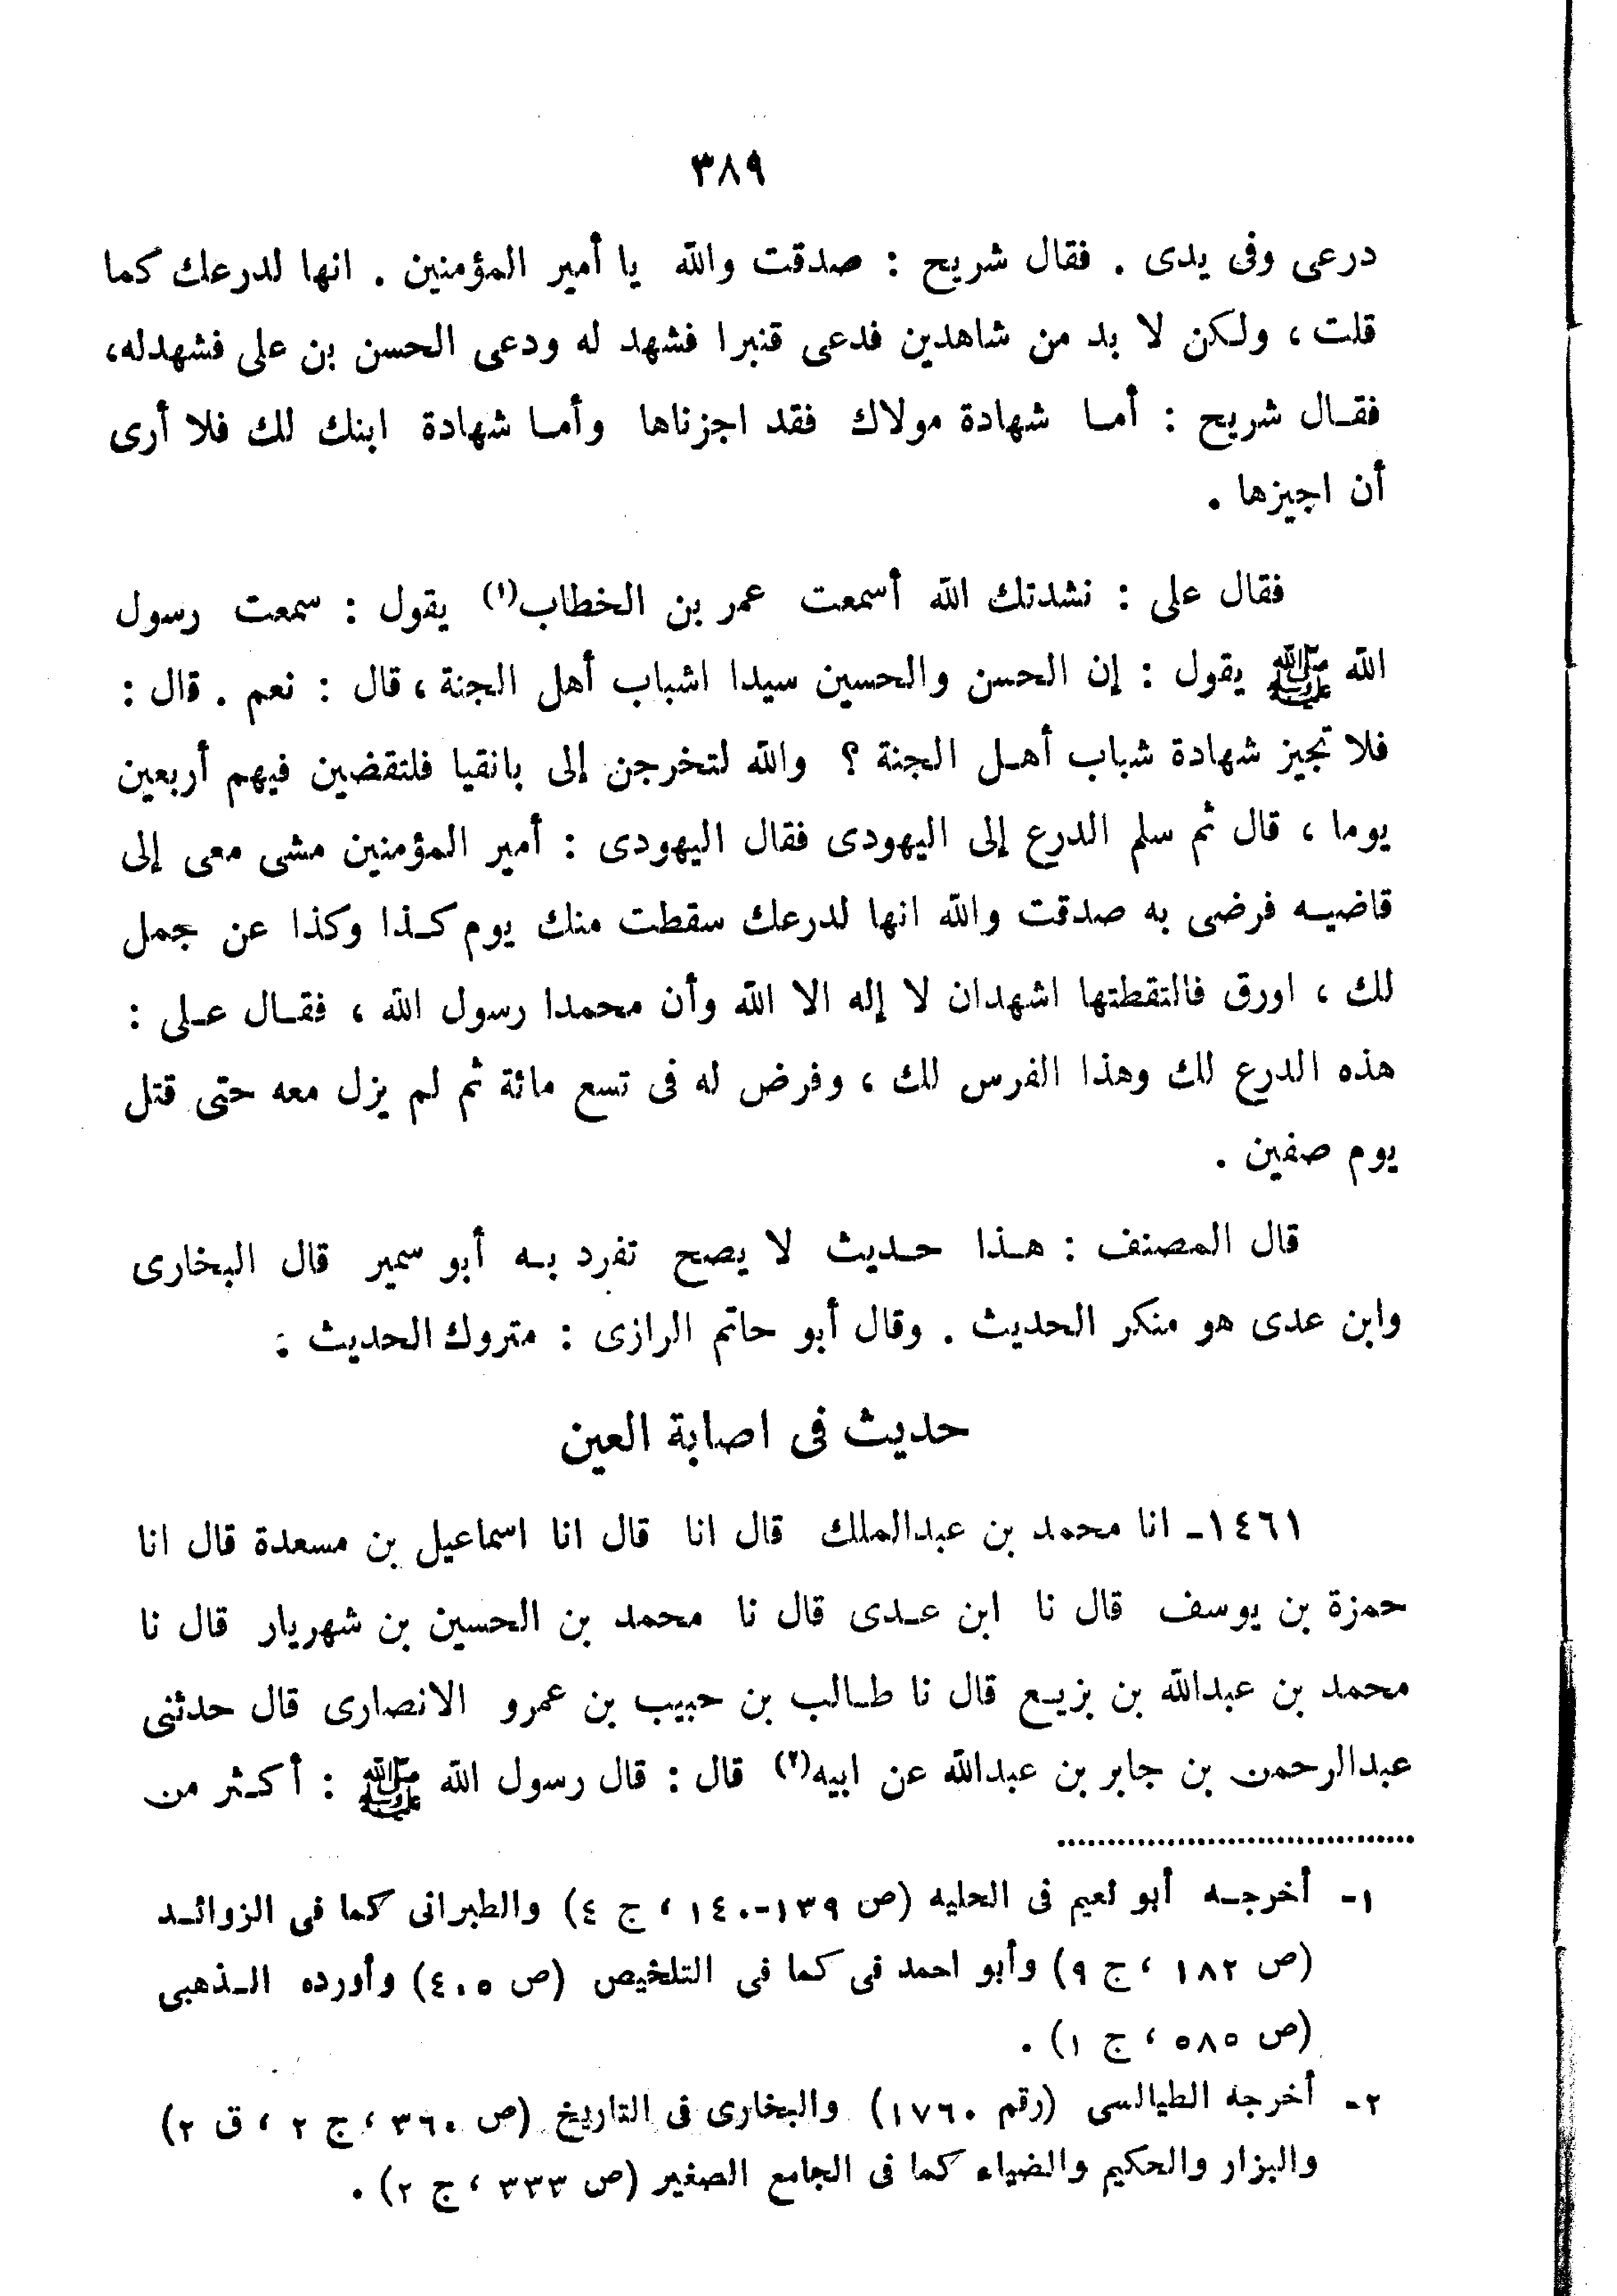 ٣٨٩
درعى وفى يدى . فقال شريح : صدقت والله يا أمير المؤمنين . انها لدرعك كما
قلت ، ولكن لا بد من شاهدين فدعى قنبرا فشهد له ودعى الحسن بن على فشهدله،
فقال شريح : أما شهادة مولاك فقد اجزناها وأما شهادة ابنك لك فلا أرى
أن اجيزها .
فقال على : نشدتك الله أسمعت عمر بن الخطاب(١) يقول : سمعت رسول
الله ﷺ يقول : إن الحسن والحسين سيدا اشباب أهل الجنة ، قال : نعم . قال :
فلا تجيز شهادة شباب أهل الجنة ؟ والله لتخرجن إلى بانقيا فلتقضين فيهم أربعين
يوما ، قال ثم سلم الدرع إلى اليهودى فقال اليهودى : أمير المؤمنين مشى معى إلى
قاضيه فرضى به صدقت والله انها لدرعك سقطت منك يوم كذا وكذا عن جمل
لك ، اورق فالتقطتها اشهدان لا إله الا الله وأن محمدا رسول الله ، فقال على :
هذه الدرع لك وهذا الفرس لك ، وفرض له فى تسع مائة ثم لم يزل معه حتى قتل
يوم صفين .
قال المصنف : هذا حديث لا يصح تفرد به أبو سمير قال البخارى
وابن عدى هو منكر الحديث . وقال أبو حاتم الرازى : متروك الحديث .
حديث فى اصابة العين
١٤٦١- انا محمد بن عبدالملك قال انا قال انا اسماعيل بن مسعدة قال انا
حمزة بن يوسف قال نا ابن عدى قال نا محمد بن الحسين بن شهريار قال نا
محمد بن عبدالله بن بزيع قال نا طالب بن حبيب بن عمرو الانصارى قال حدثنى
عبدالرحمن بن جابر بن عبدالله عن ابيه(٢) قال : قال رسول الله ﷺ : أكثر من
١- أخرجه أبو نعيم فى الحليه (ص ١٣٩-١٤٠ ، ج ٤) والطبرانى كما فى الزوائد
(ص ١٨٢ ، ج ٩) وأبو احمد فى كما فى التلخيص (ص ٤٠٥) وأورده الذهبى
(ص ٥٨٥ ، ج ١) .
٢- أخرجه الطيالسى (رقم ١٧٦٠) والبخارى فى التاريخ (ص ٣٦٠ ، ج ٢ ، ق ٢)
والبزار والحكيم والضياء كما فى الجامع الصغير (ص ٣٣٣ ، ج ٢) .